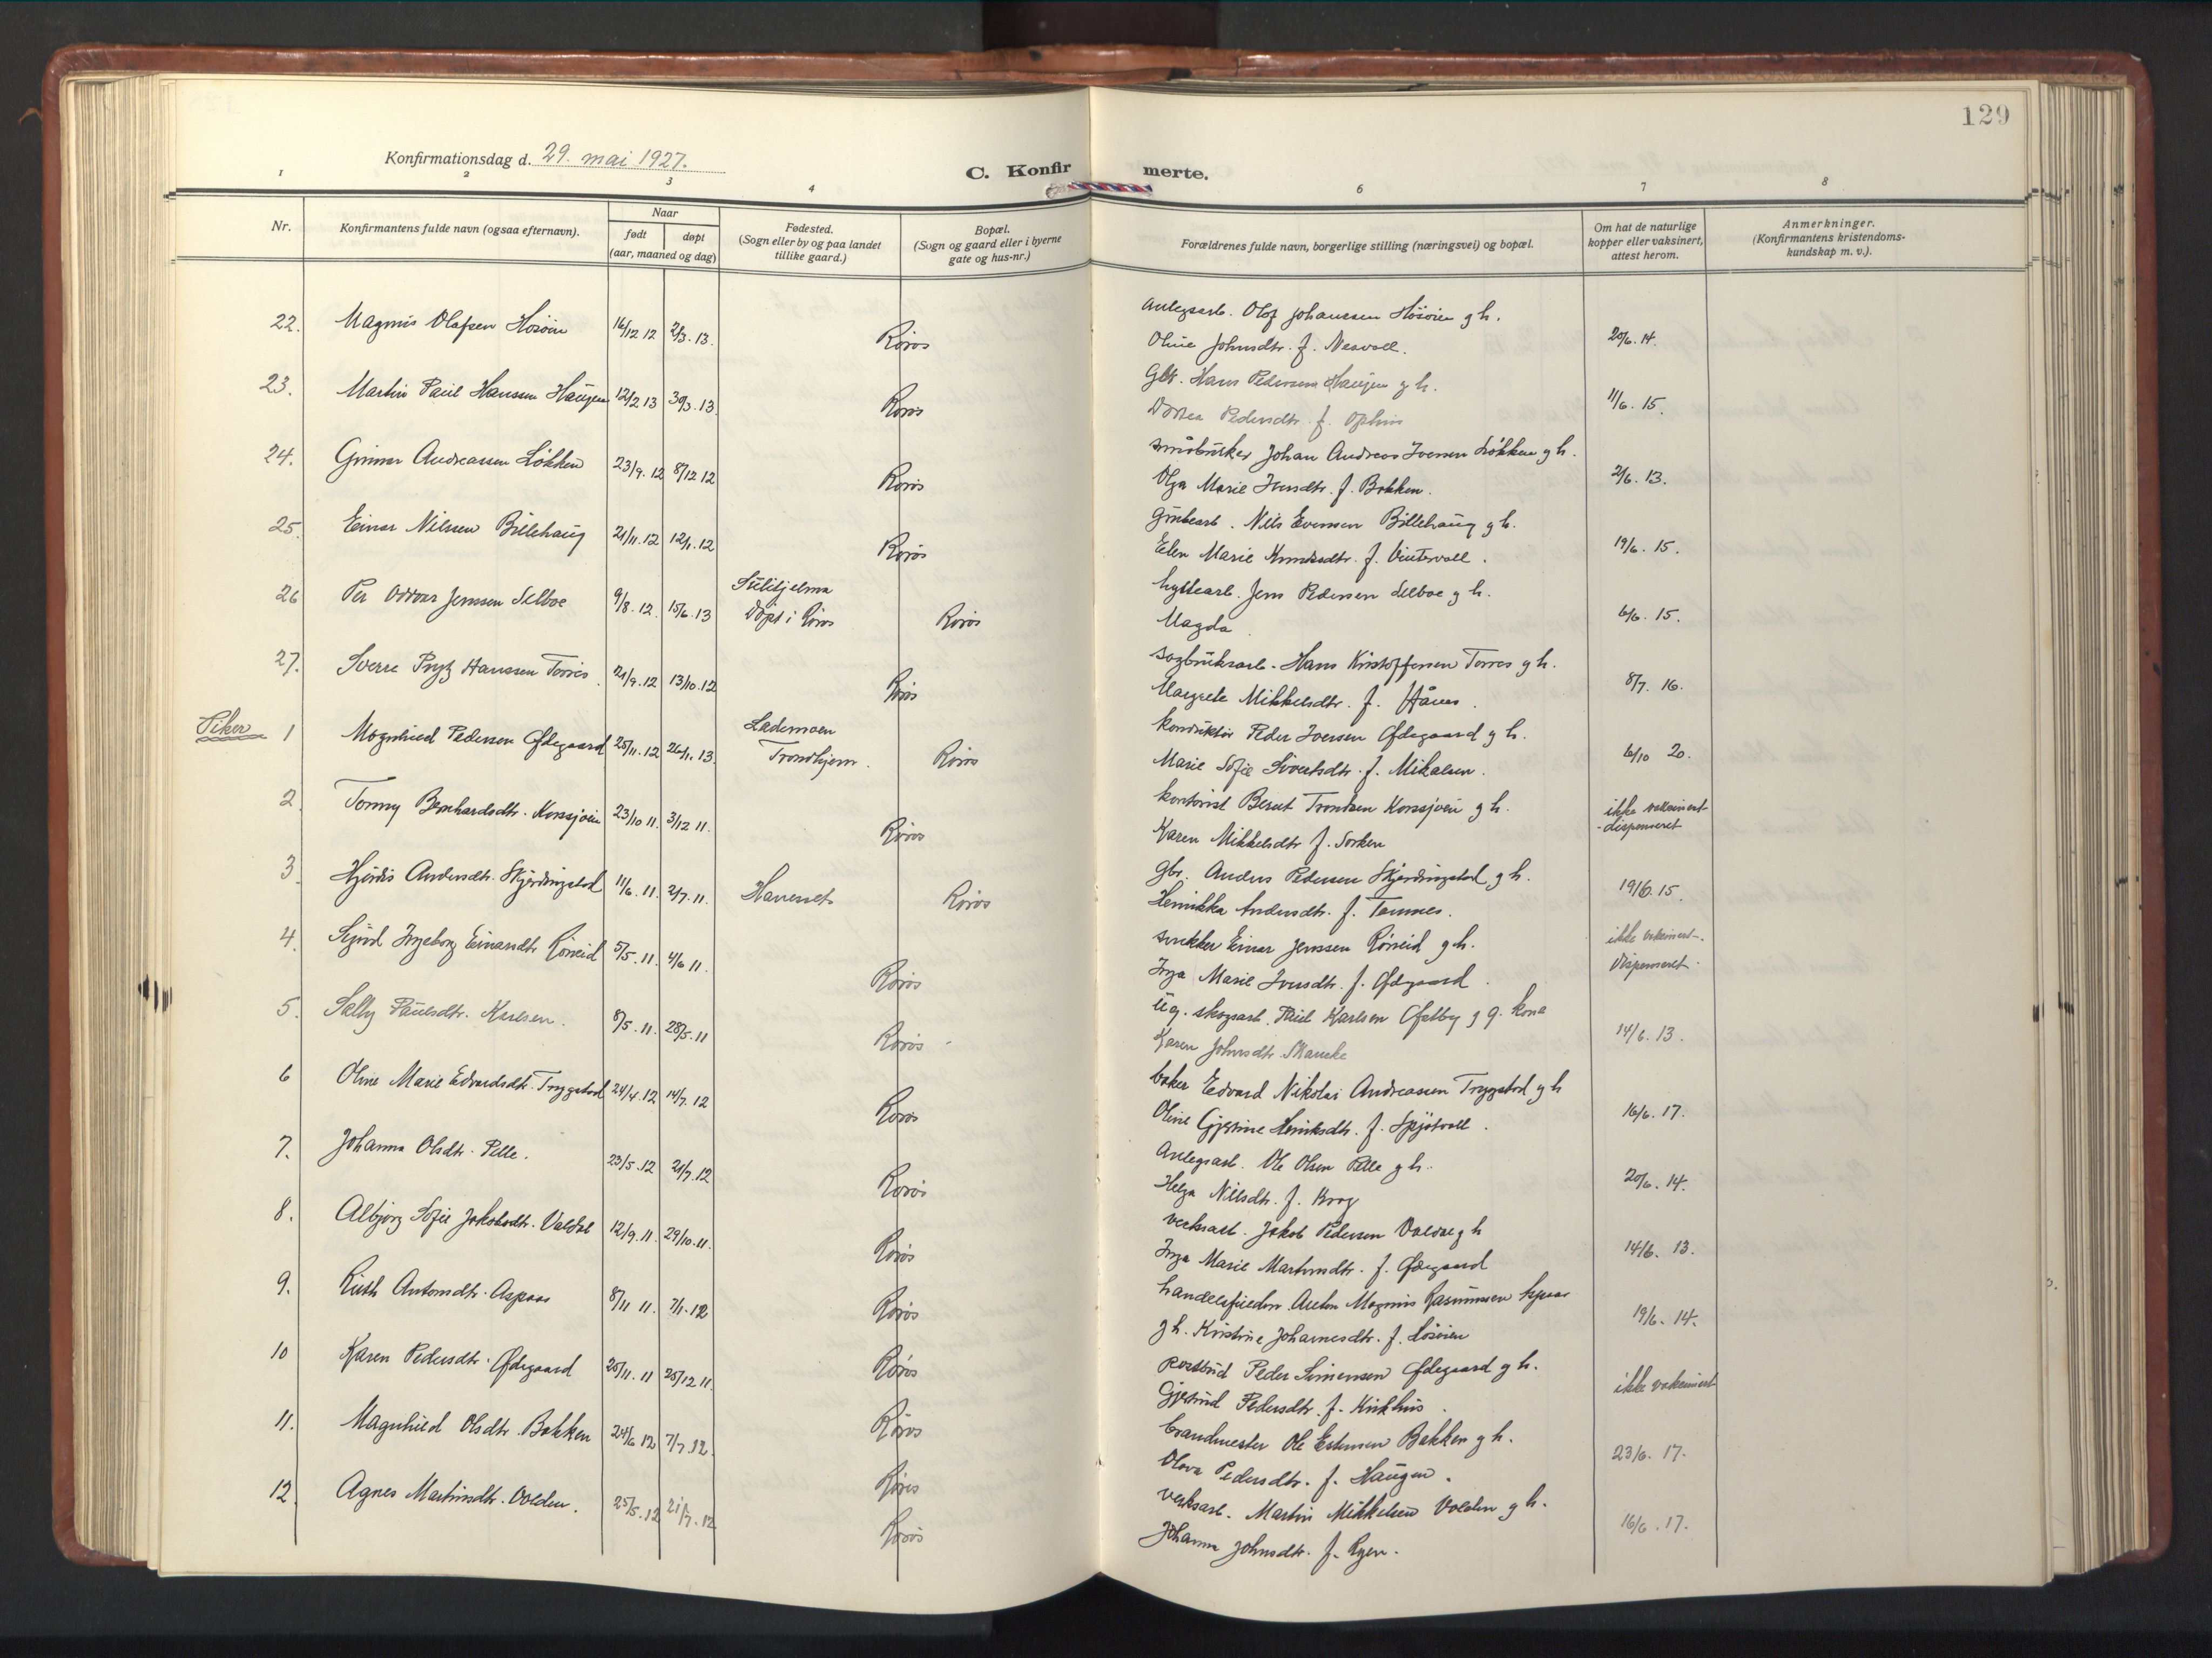 129
Konfirmationsdag d. 29. mai 1927.
C. Konfirmerte.
1 2 3 4 6 7 8
Nr.
Konfirmantens fulde navn (ogsaa efternavn).
Naar
født
døpt
(aar, maaned og dag)
Fødested.
(Sogn eller by og paa landet
tillike gaard.)
Bopæl.
(Sogn og gaard eller i byerne
gate og hus-nr.)
Forældrenes fulde navn, borgerlige stilling (næringsvei) og bopæl.
Om hat de naturlige
kopper eller vaksinert,
attest herom.
Anmerkninger.
(Konfirmantens kristendoms-
kundskap m. v.).
22. Magnus Olafsen Hosøien 16/12 12 2/3. 13. Røros
Anlegsarb. Olof Johanssen Hosøien g h.
Oline Johnsdtr. f. Nesvoll. 20/6. 14.
23. Martin Paul Hanssen Haugen 12/2 13 30/3. 13. Røros
Gbr. Hans Pedersen Haugen g h.
Dortea Pedersdtr. f. Ophus 11/6. 15.
24. Gunnar Andreassen Løkken 23/9. 12 8/12 12 Røros
småbruker Johan Andreas Iversen Løkken g h.
Olga Marie Iversdtr. f. Bakken. 2/6. 13.
25. Einar Nilssen Billehaug 21/11. 12 12/1. 12 Røros
Grubearb. Nils Evensen Billehaug g h.
Elen Marie Knudsdtr. f. Vintervoll. 19/6. 15.
26 Per Oddvar Jenssen Selboe 9/8. 12. 15/6. 13 Sulitjelma
Døpt i Røros Røros
hyttearb. Jens Pedersen Selboe g h.
Magda 6/6. 15.
27. Sverre Prytz Hanssen Torres 21/9. 12 13/10. 12 Røros
sagbruksarb. Hans Kristoffersen Torres g h.
Margrete Mikkelsdtr. f. Hånes. 8/7. 16.
Piker
1 Magnhild Pedersen Ødegaard 25/11. 12 26/1. 13. Lademoen
Trondhjem. Røros
konduktør Peder Iversen Ødegaard g h.
Marie Sofie Sivertsdtr. f. Mikalsen. 6/10 20.
2. Tonny Bernhardsdtr. Korssjøen 23/10 11. 3/12 11. Røros
kontorist Berent Trondsen Korssjøen g h.
Karen Mikkelsdtr f. Sorken
ikke vaksinert
- dispenseret
3. Hjørdis Andersdtr. Skjærdingstad 11/6. 11. 2/7. 11. Røros
gbr. Anders Pedersen Skjærdingstad g h.
Henrikka Andersdtr. f. Tamnes. 19/6. 15.
4. Sigrid Ingeborg Einarsdtr. Rømeid 5/5. 11. 4/6 11. Røros
snekker Einar Jenssen Rømeid g h.
Inga Marie Iversdtr. f. Ødegaard.
ikke vaksinert.
Dispenseret.
5. Sally Paulsdtr. Karlsen. 8/5. 11. 28/5. 11 Røros
ug. skogsarb. Paul Karlsen Østby g g. kone
Karen Johnsdtr. Skancke 14/6. 13.
6 Oline Marie Edvardsdtr. Trygstad 24/4. 12 14/7. 12 Røros
baker Edvard Nikolai Andreassen Trygstad g h
Oline Gjertine Henriksdtr. f. Spjøtvoll. 16/6. 17.
7. Johanna Olsdtr. Pelle. 23/5. 12 21/7. 12 Røros
Anlegsarb. Ole Olsen Pelle g h.
Helga Nilsdtr. f. Krog 20/6. 14.
8. Albjørg Sofie Jakobsdtr. Valdal 12/9. 11. 29/10. 11. Røros
verksarb. Jakob Pedersen Valdal g h
Inga Marie Martinsdtr. f. Ødegaard 14/6. 13.
9. Ruth Antonsdtr. Aspaas 8/11 11. 7/1. 12 Røros
handelsfuldm. Anton Magnus Rasmussen Aspaas
g h. Kristine Johannesdtr. f. Hosøien 19/6. 14.
10 Karen Pedersdtr. Ødegaard 25/11. 11 25/12 11. Røros
Postbud Peder Simensen Ødegaard g h.
Gjersind Pedersdtr. f. Kirkhus. ikke vaksinert
11. Magnhild Olsdtr. Bakken 24/6 12 7/7. 12. Røros
brandmester Ole Estensen Bakken g h.
Olava Pedersdtr. f. Haugen. 23/6. 17.
12. Agnes Martinsdtr. Volden. 25/5. 12 21/7. 12 Røros
verksarb. Martin Mikkelsen Volden g h.
Johanna Johnsdtr. f. Ryen. 16/6. 17.